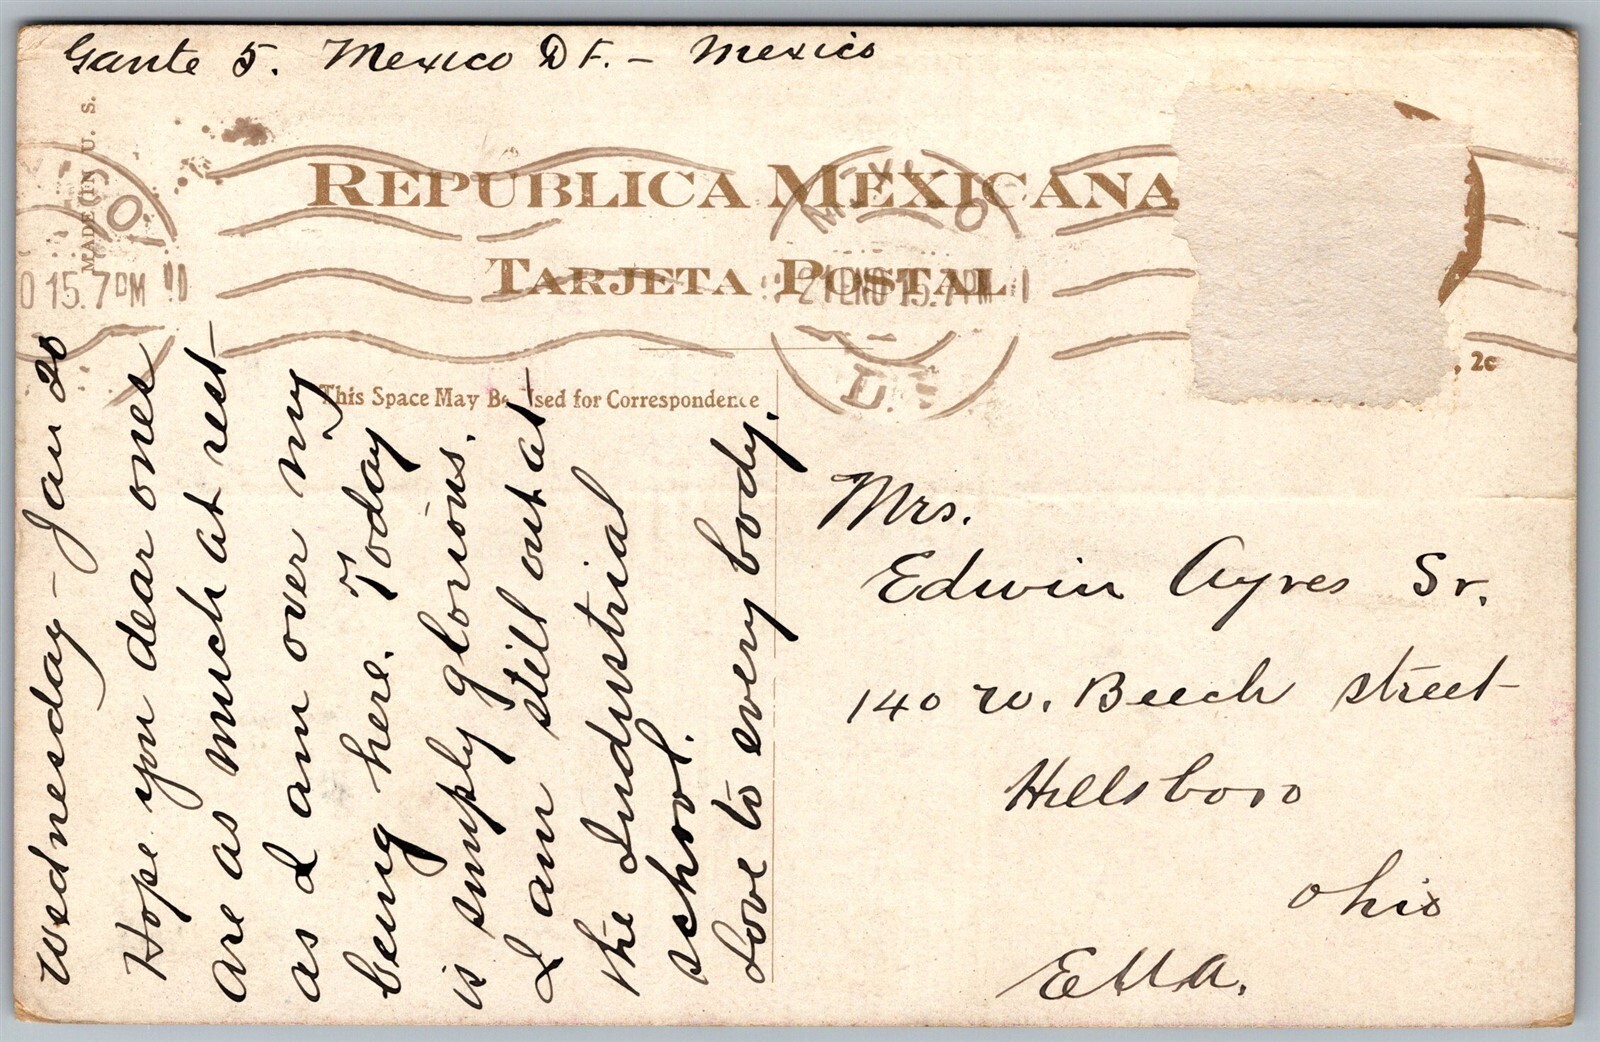 Gante 5. Mexico D F. - Mexico
MADE IN U. S.
REPUBLICA MEXICANA
TARJETA POSTAL
This Space May Be Used for Correspondence
MEXICO
15. 7 PM
21 ENO 15. 7 PM
D. F.
2c
Wednesday - Jan 20
Hope you dear ones
are as much at rest
as I am over my
being here. Today
is simply glorious.
I am still out at
the Industrial
school.
Love to every body.
Mrs.
Edwin Ayres Sr.
140 W. Beech street
Hillsboro
Ohio
E.U.A.